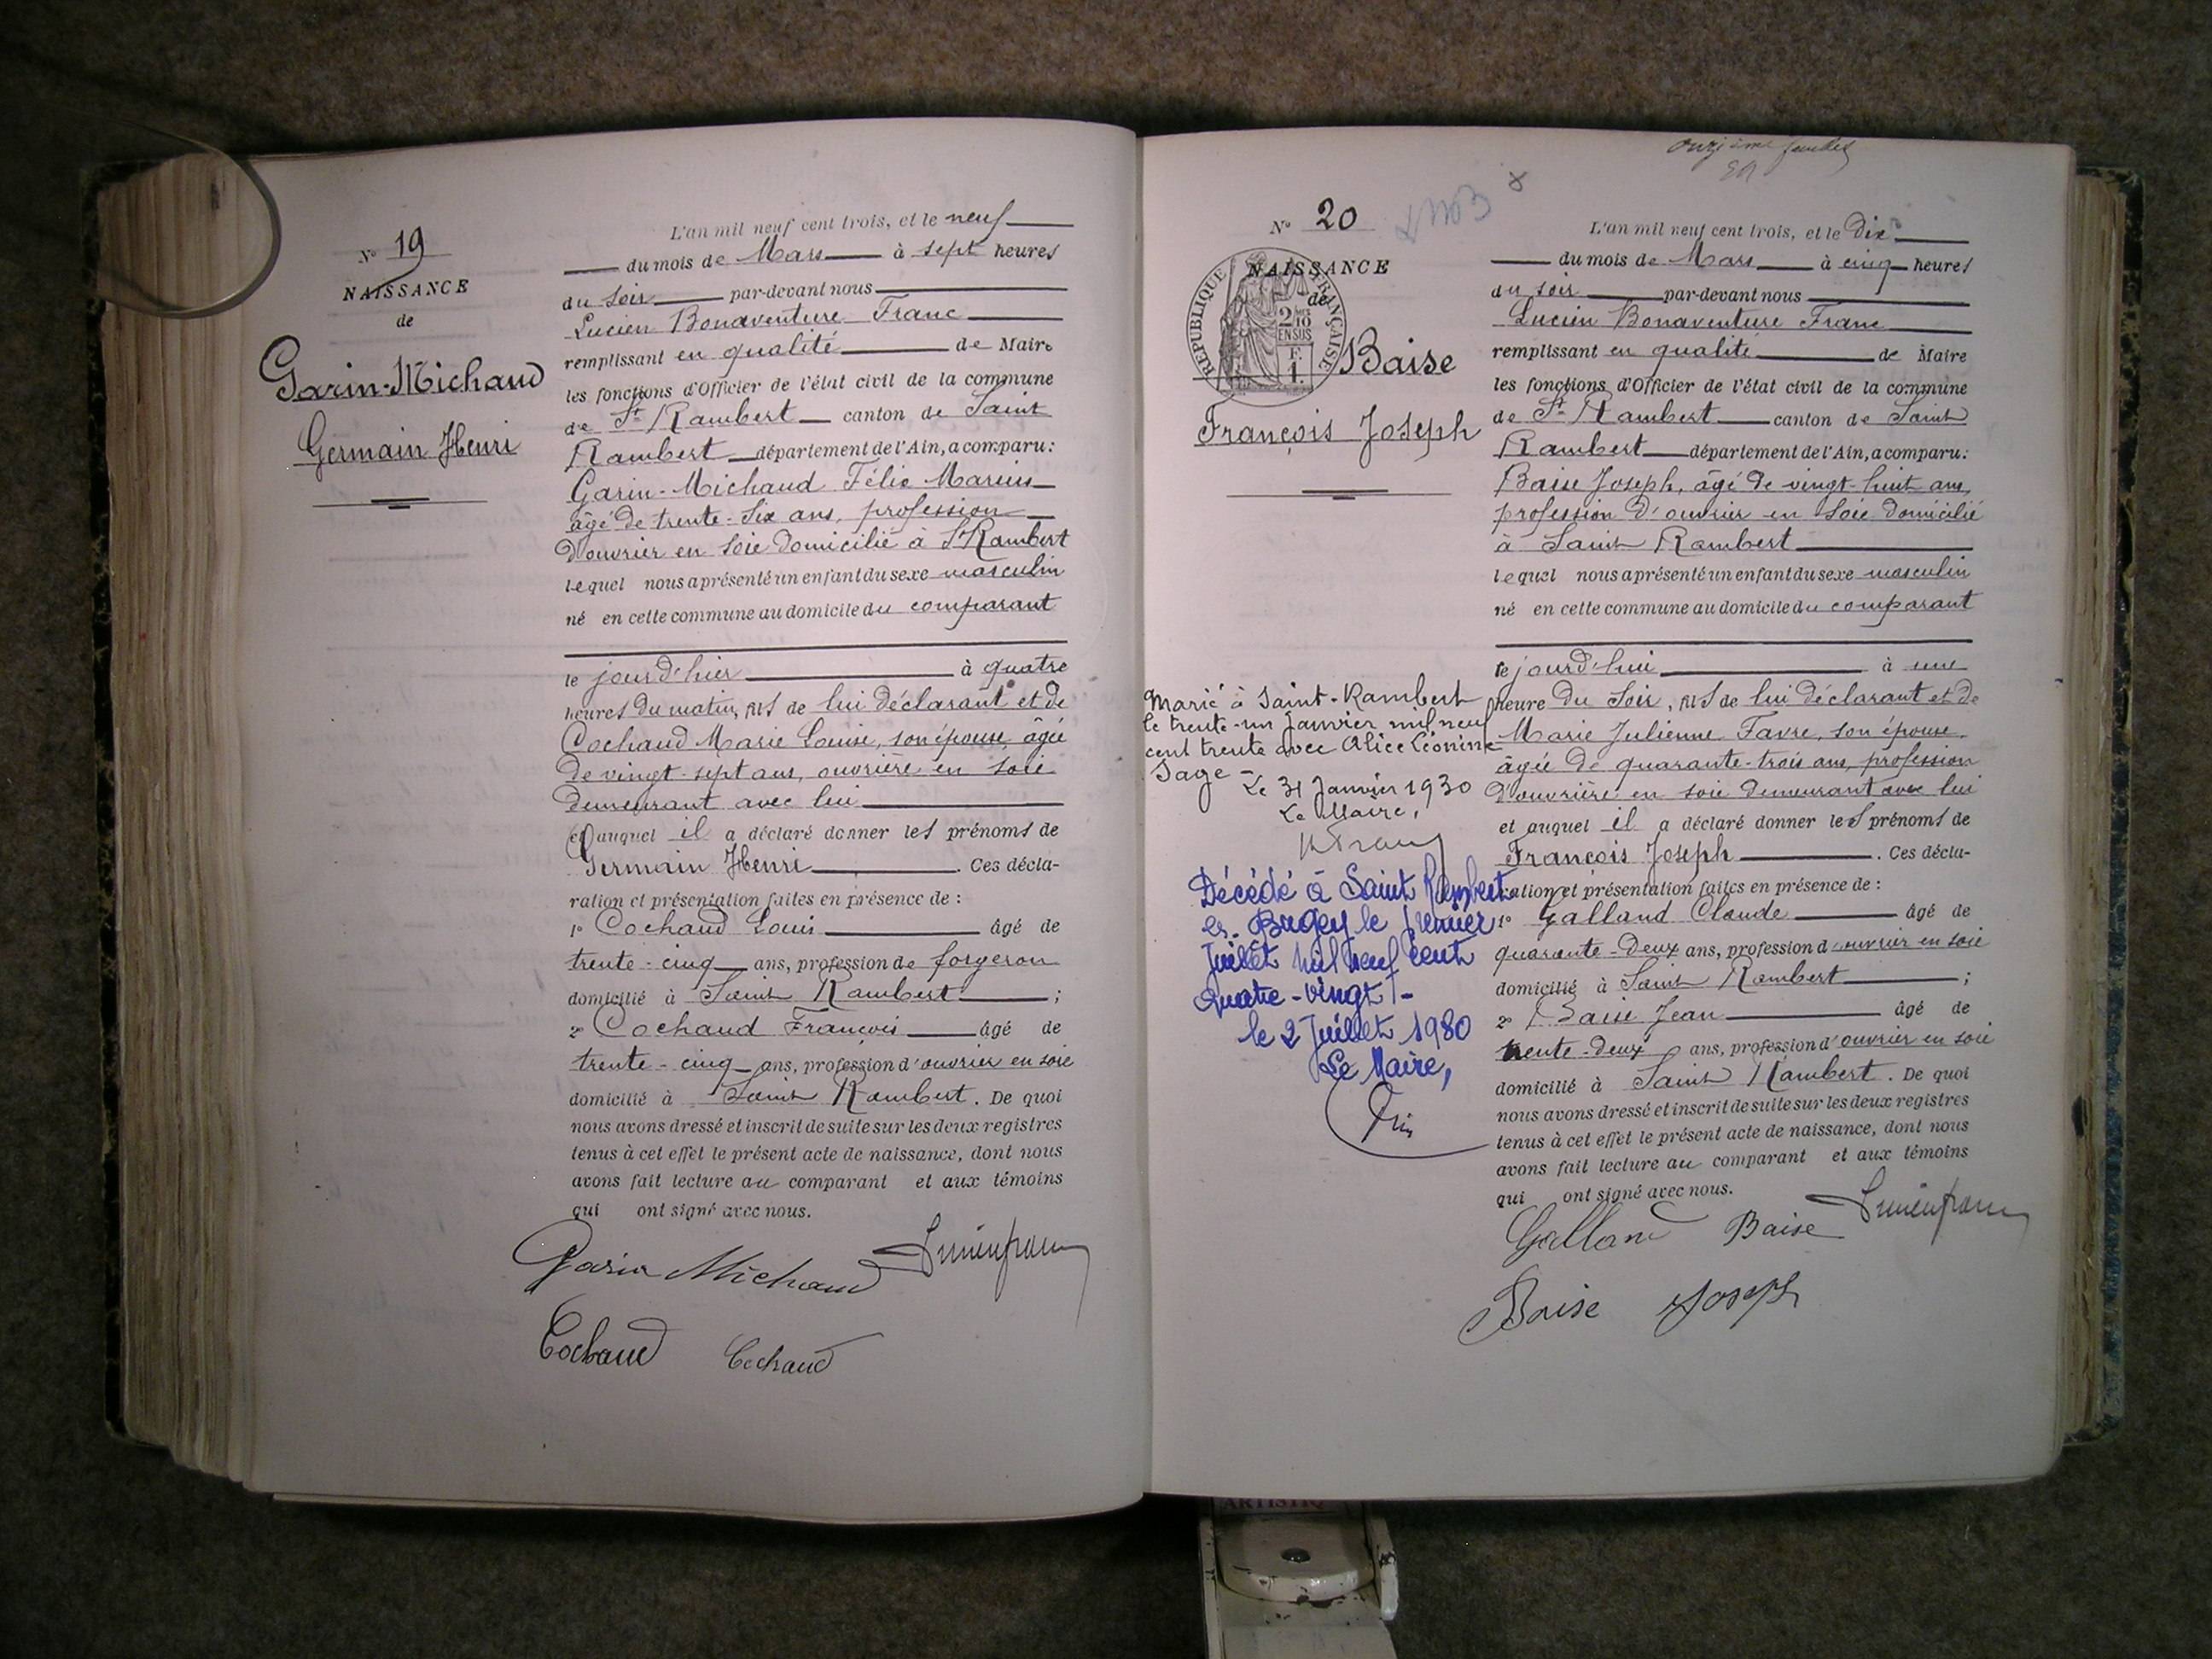 Nº 19
NAISSANCE
de
Garin-Michaud
Germain Henri
L'an mil neuf cent trois, et le neuf
du mois de Mars à sept heures
du soir par-devant nous
Lucien Bonaventure Franc
remplissant en qualité de Maire
les fonctions d'Officier de l'état civil de la commune
de St Rambert canton de Saint
Rambert département de l'Ain, a comparu:
Garin-Michaud Félix Marius
âgé de trente-six ans, profession
d'ouvrier en soie domicilié à St Rambert
lequel nous a présenté un enfant du sexe masculin
né en cette commune au domicile du comparant
le jour d'hier à quatre
heures du matin, fils de lui déclarant et de
Cochaud Marie Louise, son épouse, âgée
de vingt-sept ans, ouvrière en soie
demeurant avec lui
et auquel il a déclaré donner les prénoms de
Germain Henri. Ces décla-
ration et présentation faites en présence de :
1º Cochaud Louis âgé de
trente-cinq ans, profession de forgeron
domicilié à Saint Rambert ;
2º Cochaud François âgé de
trente-cinq ans, profession d'ouvrier en soie
domicilié à Saint Rambert. De quoi
nous avons dressé et inscrit de suite sur les deux registres
tenus à cet effet le présent acte de naissance, dont nous
avons fait lecture au comparant et aux témoins
qui ont signé avec nous.
Garin Michaud Lucien franc
Cochaud Cochaud
onzième feuillet
Nº 20
NAISSANCE
de
REPUBLIQUE FRANÇAISE
2/10
EN SUS
F.
1.
Baise
François Joseph
L'an mil neuf cent trois, et le dix
du mois de Mars à cinq heures
du soir par-devant nous
Lucien Bonaventure Franc
remplissant en qualité de Maire
les fonctions d'Officier de l'état civil de la commune
de St Rambert canton de Saint
Rambert département de l'Ain, a comparu:
Baise Joseph, âgé de vingt-huit ans,
profession d'ouvrier en soie domicilié
à Saint Rambert
lequel nous a présenté un enfant du sexe masculin
né en cette commune au domicile du comparant
le jourd'hui à une
heure du soir, fils de lui déclarant et de
Marie Julienne Favre, son épouse,
âgée de quarante-trois ans, profession
d'ouvrière en soie demeurant avec lui
et auquel il a déclaré donner les prénoms de
François Joseph. Ces décla-
ration et présentation faites en présence de :
1º Galland Claude âgé de
quarante-deux ans, profession d'ouvrier en soie
domicilié à Saint Rambert ;
2º Baise Jean âgé de
trente-deux ans, profession d'ouvrier en soie
domicilié à Saint Rambert. De quoi
nous avons dressé et inscrit de suite sur les deux registres
tenus à cet effet le présent acte de naissance, dont nous
avons fait lecture au comparant et aux témoins
qui ont signé avec nous.
Galland Baise Lucien franc
Baise Joseph
Marié à Saint-Rambert
le trente-un Janvier mil neuf
cent trente avec Alice Léonine
Sage -
Le 31 Janvier 1930
Le Maire,
Décédé à Saint Rambert
es-Bugey le premier
Juillet mil neuf cent
quatre-vingt -
le 2 Juillet 1980
Le Maire,
ARTISTIQ